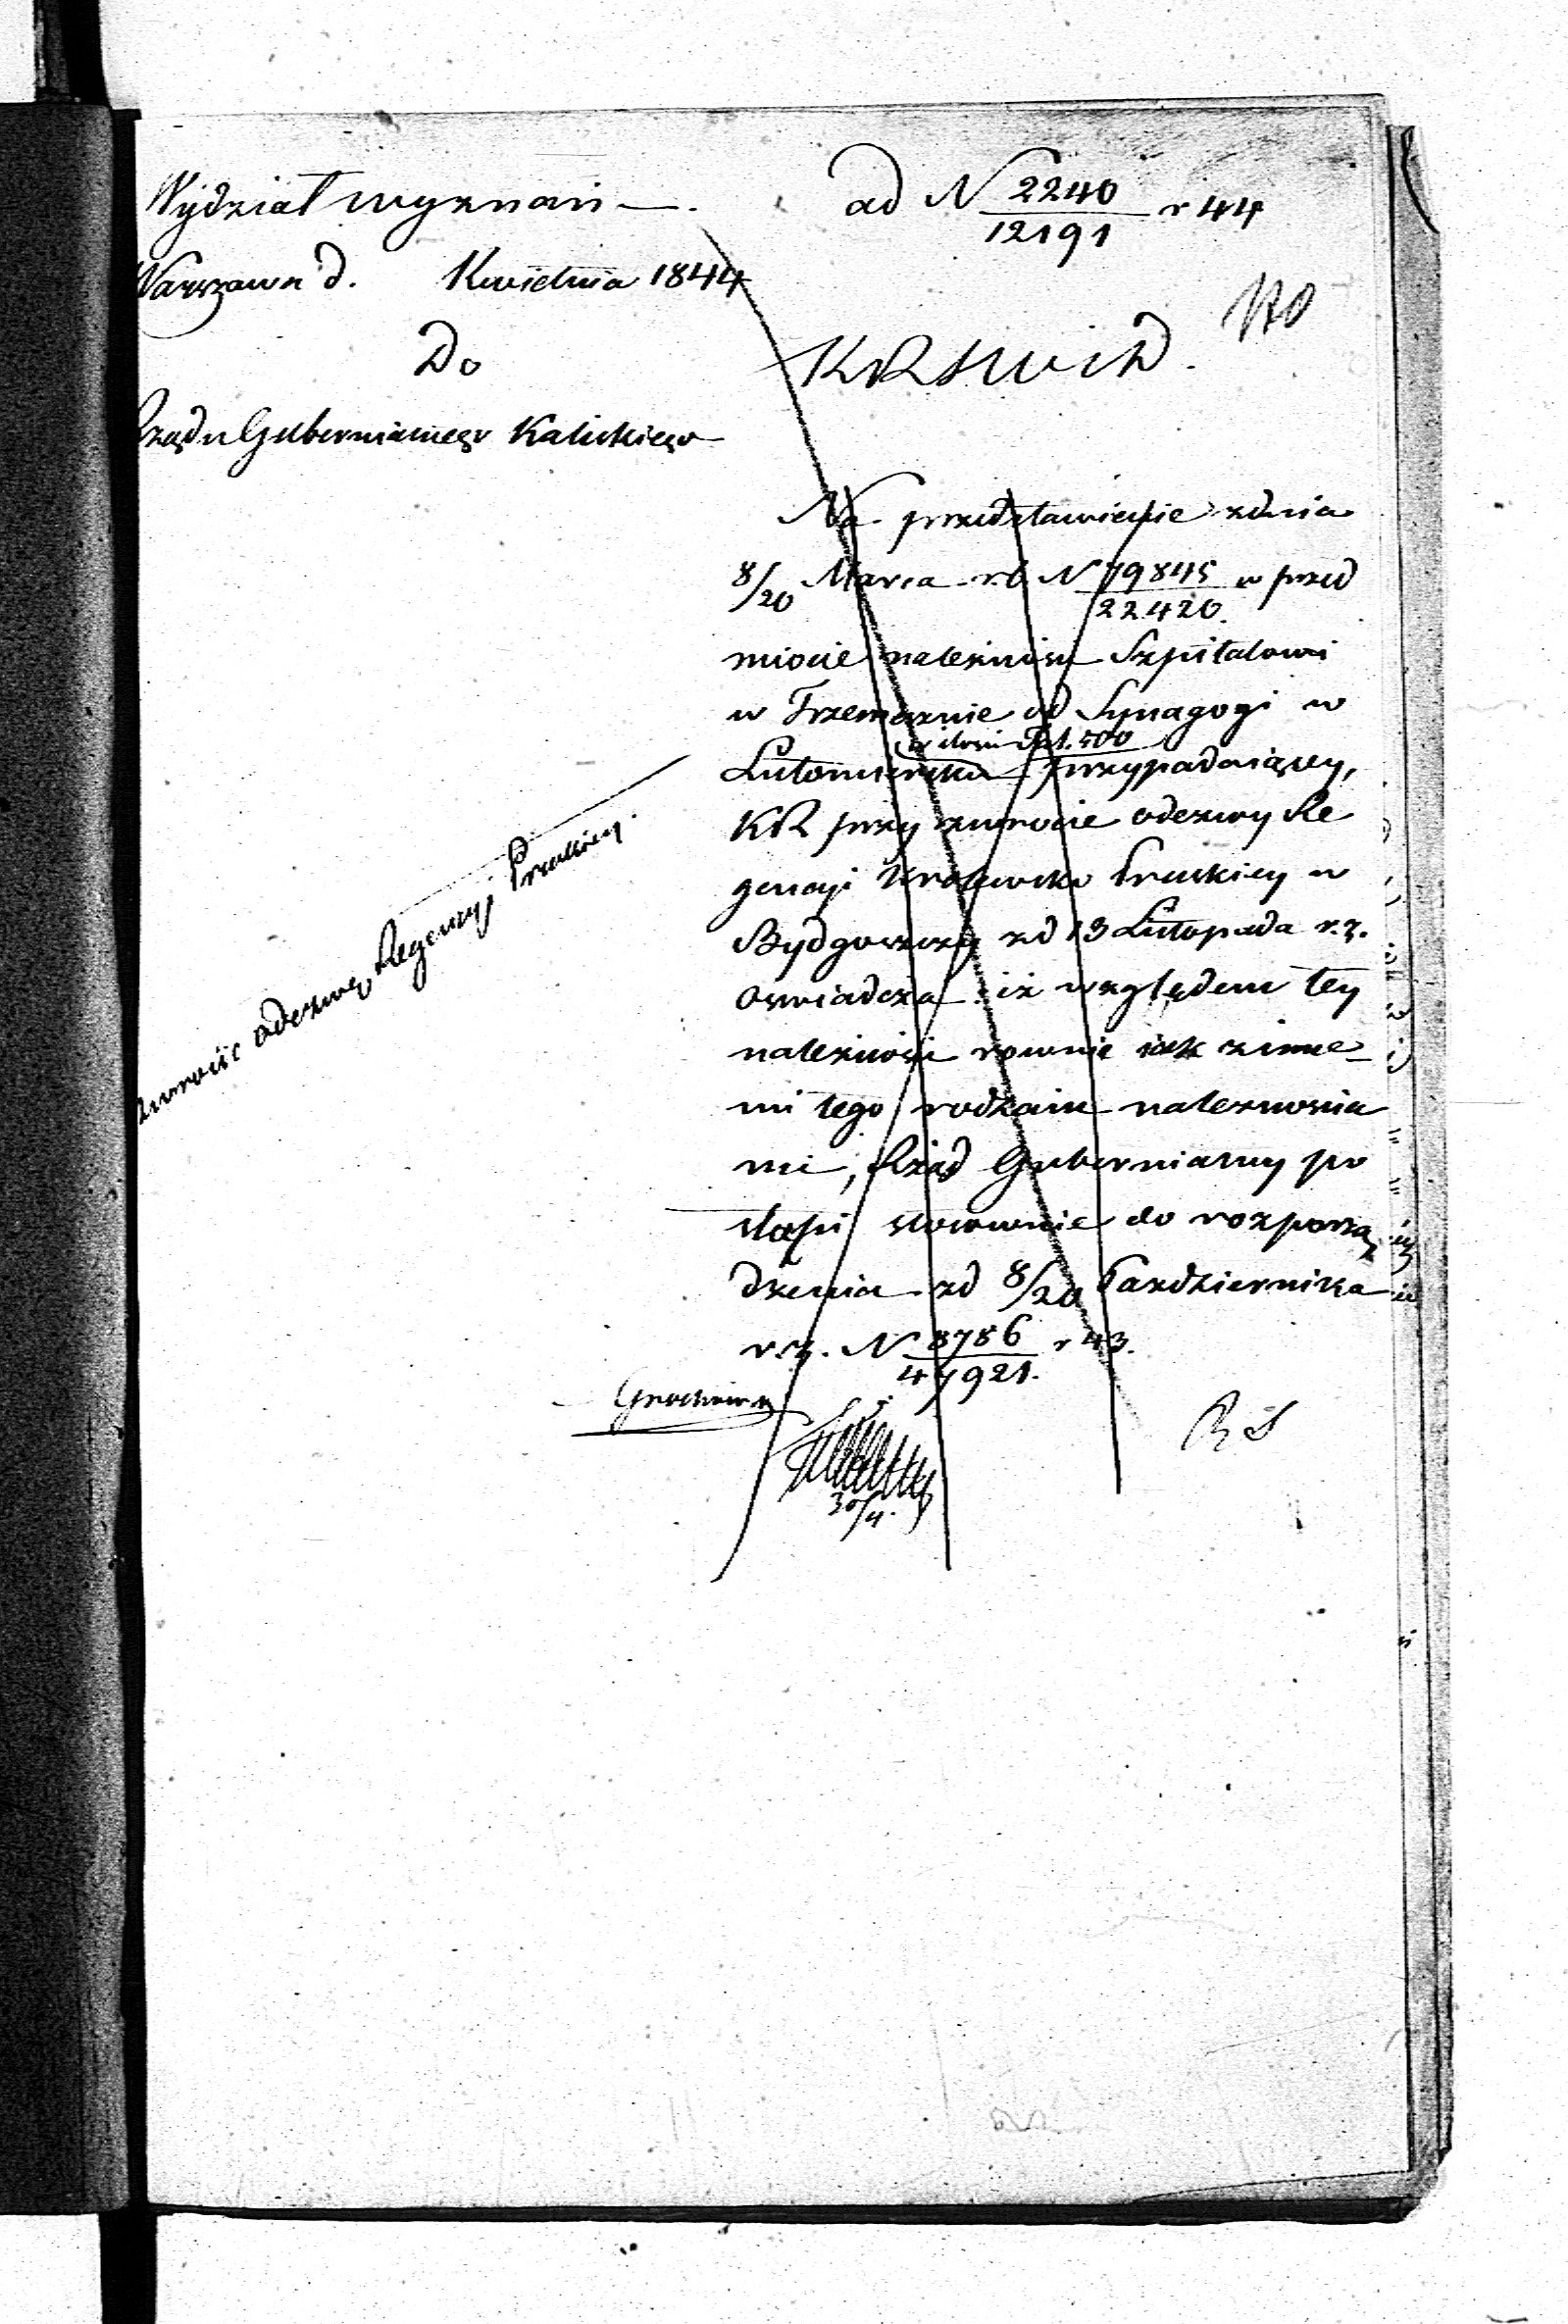 Wydział wyznań
ad N 2240/12191 r 44
Warszawa d. Kwietnia 1844
Do
KRSWiD.
Rządu Gubernialnego Kaliskiego
Na przedstawienie z dnia
8/20 Marca r.b. N 79845/22420. w przed
miocie należności Szpitalowi
w Trzemesznie od Synagogi w
w ilości Tal. 500
Lutomiersku przypadaiącey,
KR przy zwrocie odezwy Re
gencyi Królewsko Pruskiey w
Bydgoszczy z d 13 Listopada r.z.
Oswiadcza iż względem tey
należności rownie iak z inne
mi tego rodzaiu należnościa
mi, Rząd Gubernialny po
stąpi stosownie do rozporzą
dzenia z d 8/20 Pazdziernika
r.z. N 8786/47921. r 43.
30/4.
Zwrócić odezwę Regencyi Pruskiey.